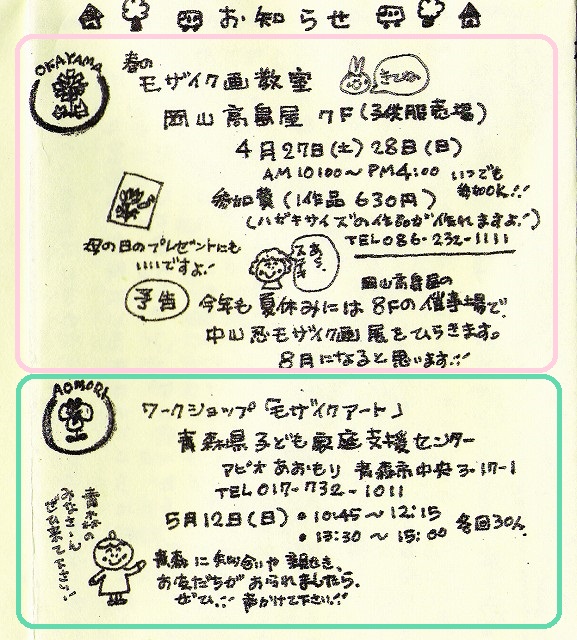 お知らせ
OKAYAMA
春の
モザイク画教室
きてね
岡山高島屋 7F(子供服売場)
4月27日(土) 28日(日)
AM10:00〜PM4:00 いつでも参加OK!!
参加費(1作品 630円)
(ハガキサイズの作品が作れますよ!)
TEL 086-232-1111
母の日のプレゼントにも
いいですよ!
あら、ステキ
予告 今年も夏休みには岡山高島屋の8Fの催事場で
中山忍モザイク画展をひらきます。
8月になると思います!!
AOMORI
ワークショップ「モザイクアート」
青森県子ども家庭支援センター
アピオあおもり 青森市中央3-17-1
TEL 017-732-1011
5月12日(日) • 10:45〜12:15
• 13:30〜15:00 各回30人
青森の
みなさ〜ん
ぜひ来て下さい!
青森にお知り合いや親せき、
お友だちがおられましたら、
ぜひ!! 声かけて下さい!!